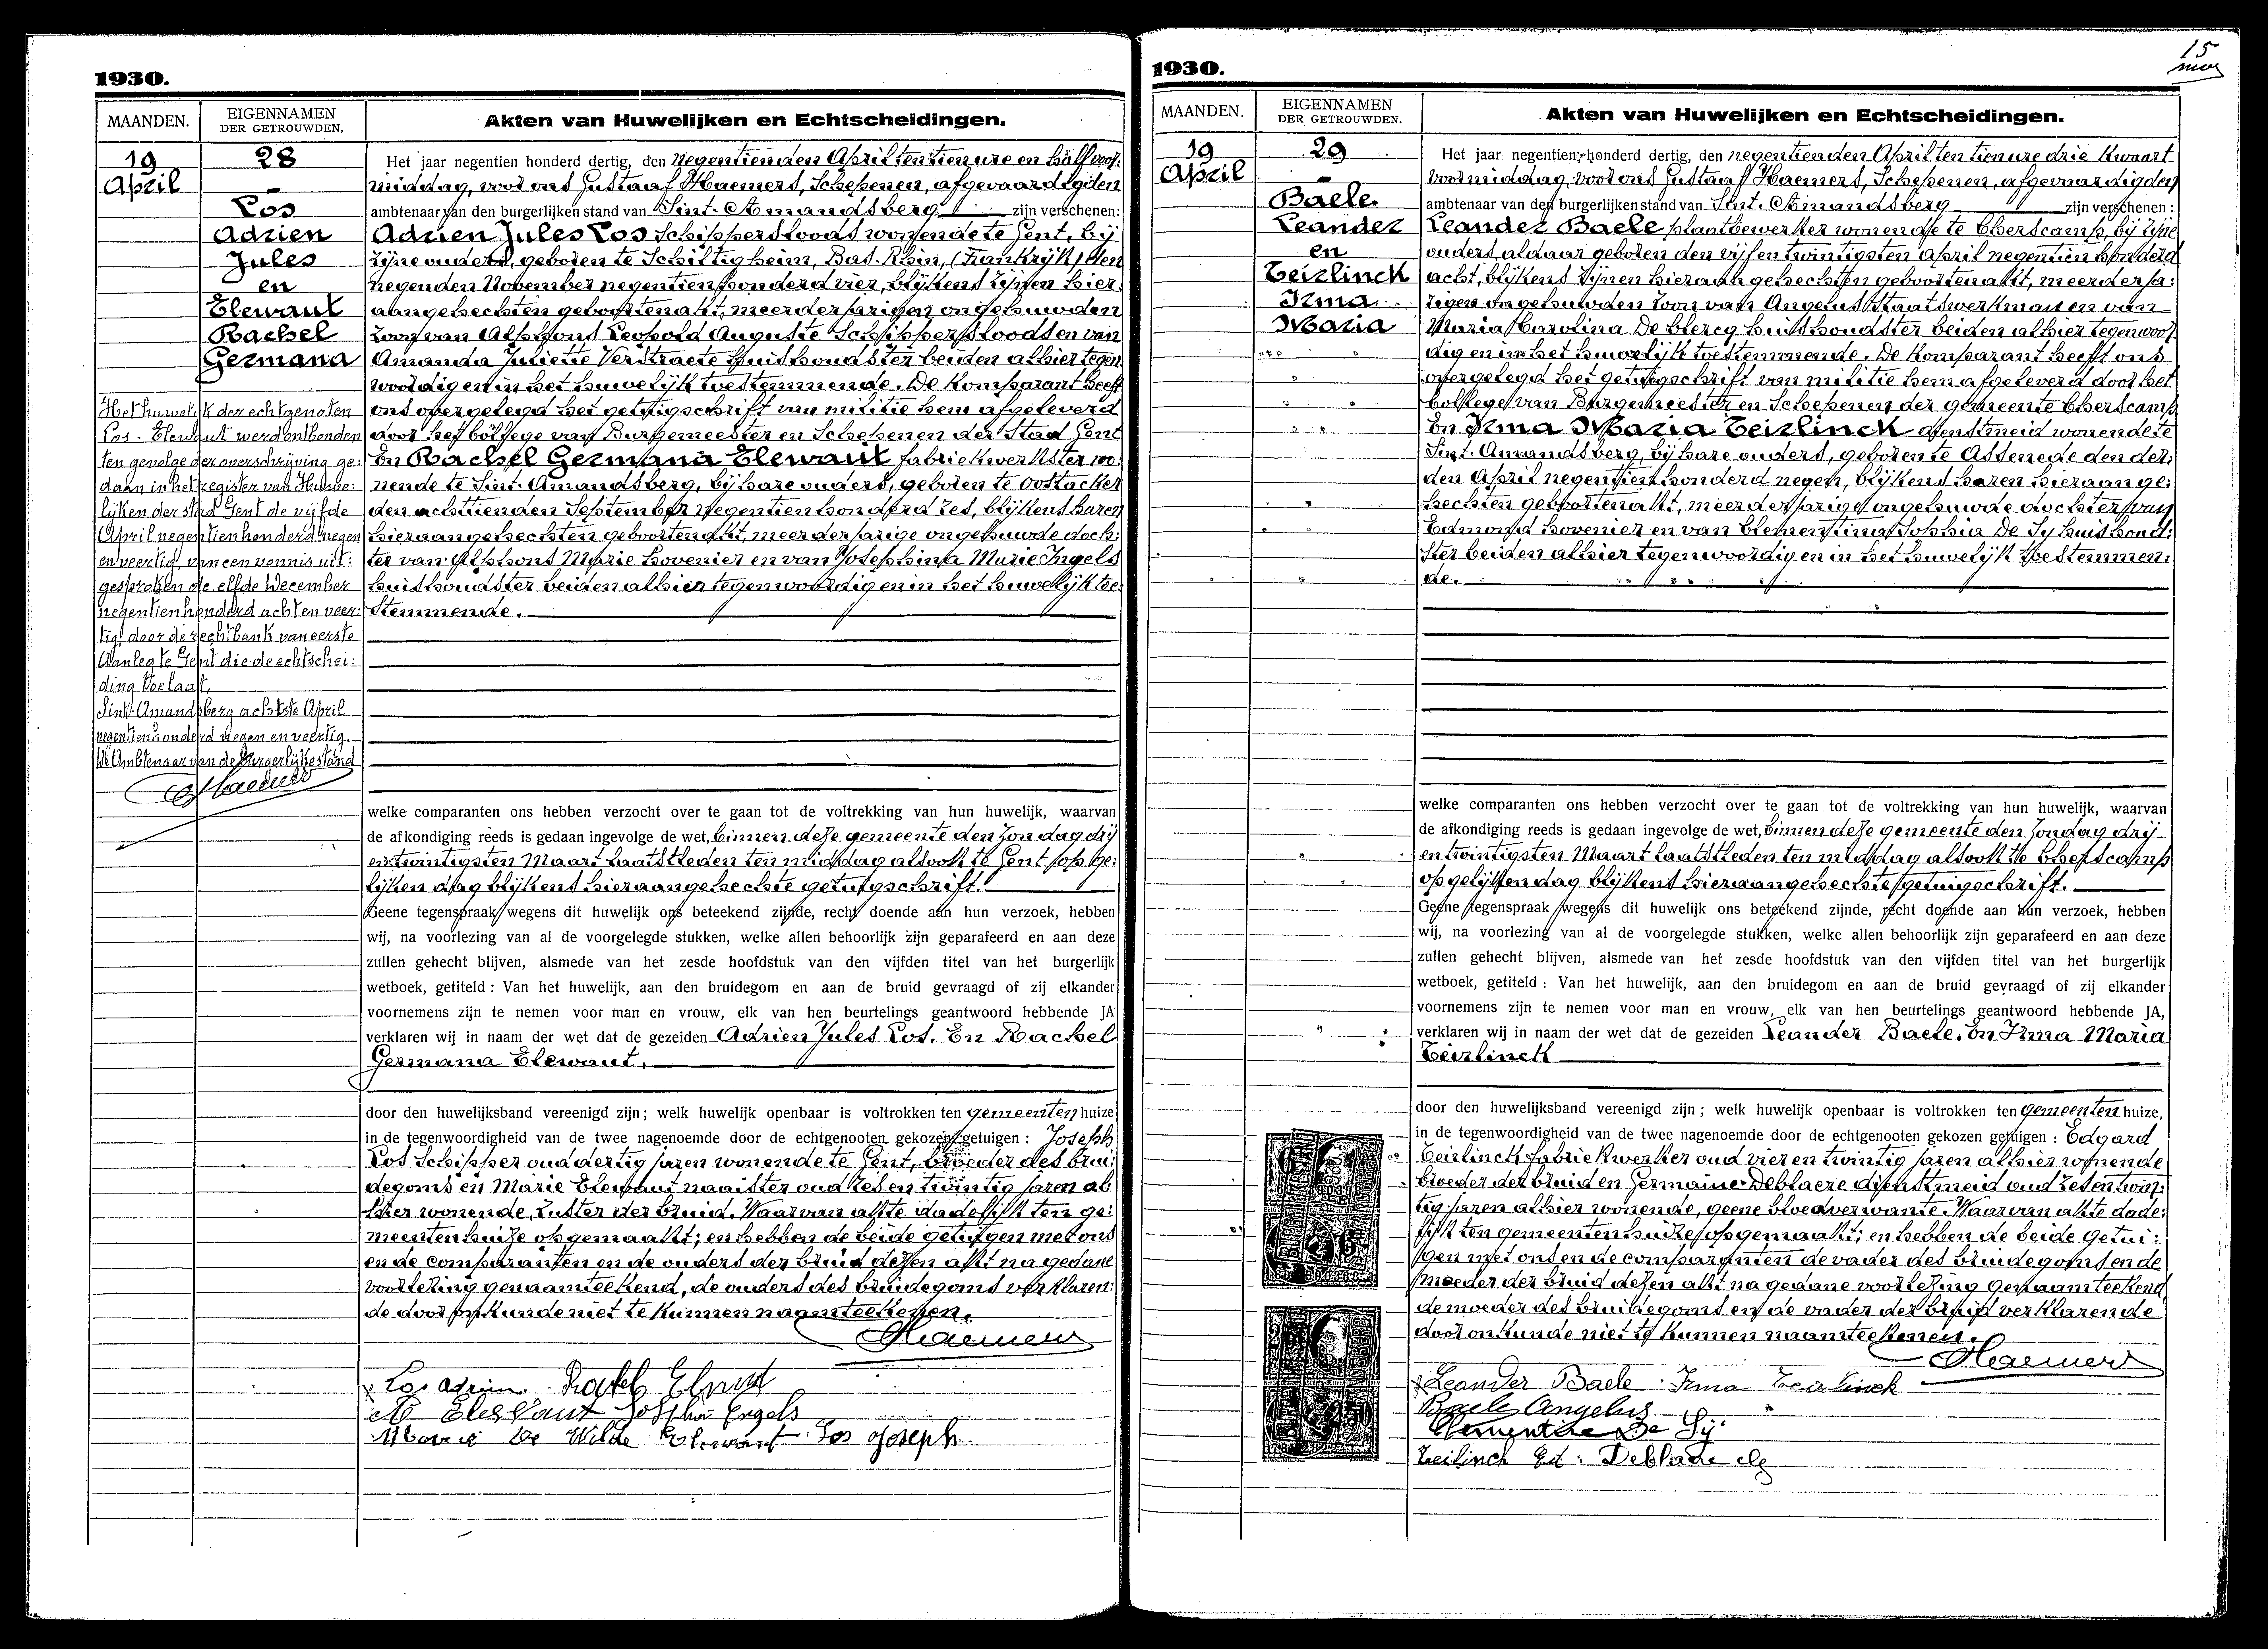 1930.
MAANDEN.
EIGENNAMEN
DER GETROUWDEN.
Akten van Huwelijken en Echtscheidingen.
19
April
28
Los
Adrien
Jules
en
Elewaut
Rachel
Germana
Het huwelijk der echtgenoten
Los - Elewaut werd ontbonden
ten gevolge der overschrijving ge:
daan in het register van Huwe:
lijken der stad Gent de vijfde
April negentienhonderd negen
en veertig, van een vonnis uit:
gesproken de elfde December
negentienhonderd acht en veer:
tig, door de rechtbank van eerste
Aanleg te Gent die de echtschei:
ding toelaat.
Sint-Amandsberg achtste April
negentienhonderd negen en veertig.
De Ambtenaar van de Burgerlijke stand
Haemers
Het jaar negentien honderd dertig, den negentienden April ten tien ure en half voor:
middag, voor ons Gustaaf Haemers, Schepenen, afgevaardigden
ambtenaar van den burgerlijken stand van Sint-Amandsberg zijn verschenen:
Adrien Jules Los Schippersloods wonende te Gent, bij
zijne ouders, geboren te Schiltigheim, Bas-Rhin, (Frankrijk) den
negenden November negentien honderd vier, blijkens zijnen hier:
aangehechten geboortenakt, meerderjarigen ongehuwden
zoon van Alphons Leopold Auguste Schippersloods en van
Amanda Juliette Verstraete huishoudster beiden alhier tegen
woordig en in het huwelijk toestemmende. De komparant heeft
ons overgelegd het getuigschrift van militie hem afgeleverd
door het college van Burgemeester en Schepenen der Stad Gent
En Rachel Germana Elewaut fabriekwerkster wo:
nende te Sint-Amandsberg, bij hare ouders, geboren te Oostacker
den achttienden September negentien honderd zes, blijkens haren
hieraangehechten geboortenakt, meerderjarige ongehuwde doch:
ter van Alphons Marie hovenier en van Josephina Marie Engels
huishoudster beiden alhier tegenwoordig en in het huwelijk toe
stemmende.
welke comparanten ons hebben verzocht over te gaan tot de voltrekking van hun huwelijk, waarvan
de afkondiging reeds is gedaan ingevolge de wet, binnen deze gemeente den zondag drij
en twintigsten Maart laatstleden ten middag alsook te Gent op ge:
lijken dag blijkens hieraangehechte getuigschrift.
Geene tegenspraak wegens dit huwelijk ons beteekend zijnde, recht doende aan hun verzoek, hebben
wij, na voorlezing van al de voorgelegde stukken, welke allen behoorlijk zijn geparafeerd en aan deze
zullen gehecht blijven, alsmede van het zesde hoofdstuk van den vijfden titel van het burgerlijk
wetboek, getiteld : Van het huwelijk, aan den bruidegom en aan de bruid gevraagd of zij elkander
voornemens zijn te nemen voor man en vrouw, elk van hen beurtelings geantwoord hebbende JA
verklaren wij in naam der wet dat de gezeiden Adrien Jules Los. En Rachel
Germana Elewaut.
door den huwelijksband vereenigd zijn ; welk huwelijk openbaar is voltrokken ten gemeenten huize
in de tegenwoordigheid van de twee nagenoemde door de echtgenooten gekozen getuigen : Joseph
Los Schipper oud dertig jaren wonende te Gent, broeder des brui:
degoms en Marie Elewaut naaister oud zes en twintig jaren al
hier wonende, zuster der bruid. Waarvan akte dadelijk ten ge:
meentenhuize opgemaakt; en hebben de beide getuigen met ons
en de comparanten en de ouders der bruid dezen akt na gedane
voorlezing genaamteekend, de ouders des bruidegoms verklaren:
de door onkunde niet te kunnen naamteekenen.
Haemers
Los Adrien Rachel Elewaut
A Elewaut Josephina Engels
Marie De Wilde Elewaut Los Joseph
1930.
15
MAANDEN.
EIGENNAMEN
DER GETROUWDEN.
Akten van Huwelijken en Echtscheidingen.
19
April
29
Baele
Leander
en
Teirlinck
Irma
Maria
Het jaar negentien honderd dertig, den negentienden April ten tien ure drie kwaart
voormiddag, voor ons Gustaaf Haemers, Schepenen, afgevaardigden
ambtenaar van den burgerlijken stand van Sint-Amandsberg zijn verschenen :
Leander Baele plaatbewerker wonende te Cherscamp, bij zijne
ouders, aldaar geboren den vijf en twintigsten April negentien honderd
acht, blijkens zijnen hieraangehechten geboortenakt, meerderja:
rigen ongehuwden zoon van Angelus Staatswerkman en van
Maria Carolina De Clercq huishoudster beiden alhier tegenwoor
dig en in het huwelijk toestemmende. De komparant heeft ons
overgelegd het getuigschrift van militie hem afgeleverd door het
College van Burgemeester en Schepenen der gemeente Cherscamp
En Irma Maria Teirlinck dienstmeid wonende te
Sint-Amandsberg, bij hare ouders, geboren te Assenede den der:
den April negentien honderd negen, blijkens haren hieraange:
hechten geboortenakt, meerderjarige ongehuwde dochter van
Edmond hovenier en van Clementina Sophia De Sy huishoud:
ster beiden alhier tegenwoordig en in het huwelijk toestemmen:
de.
welke comparanten ons hebben verzocht over te gaan tot de voltrekking van hun huwelijk, waarvan
de afkondiging reeds is gedaan ingevolge de wet, binnen deze gemeente den zondag drij
en twintigsten Maart laatstleden ten middag alsook te Cherscamp
op gelijken dag blijkens hieraangehechte getuigschrift.
Geene tegenspraak wegens dit huwelijk ons beteekend zijnde, recht doende aan hun verzoek, hebben
wij, na voorlezing van al de voorgelegde stukken, welke allen behoorlijk zijn geparafeerd en aan deze
zullen gehecht blijven, alsmede van het zesde hoofdstuk van den vijfden titel van het burgerlijk
wetboek, getiteld : Van het huwelijk, aan den bruidegom en aan de bruid gevraagd of zij elkander
voornemens zijn te nemen voor man en vrouw, elk van hen beurtelings geantwoord hebbende JA,
verklaren wij in naam der wet dat de gezeiden Leander Baele. En Irma Maria
Teirlinck
door den huwelijksband vereenigd zijn ; welk huwelijk openbaar is voltrokken ten gemeenten huize,
in de tegenwoordigheid van de twee nagenoemde door de echtgenooten gekozen getuigen : Edgard
Teirlinck fabriekwerker oud vier en twintig jaren alhier wonende
broeder der bruid en Germaine Deblaere dienstmeid oud zes en twin:
tig jaren alhier wonende, geene bloedverwante. Waarvan akte dade:
lijk ten gemeentenhuize opgemaakt; en hebben de beide getui:
gen met ons en de comparanten de vader des bruidegoms en de
moeder der bruid dezen akt na gedane voorlezing genaamteekend
de moeder des bruidegoms en de vader der bruid verklarende
door onkunde niet te kunnen naamteekenen.
Haemers
Leander Baele Irma Teirlinck
Baele Angelus
Clementina De Sy
Teirlinck Ed : Deblaere G